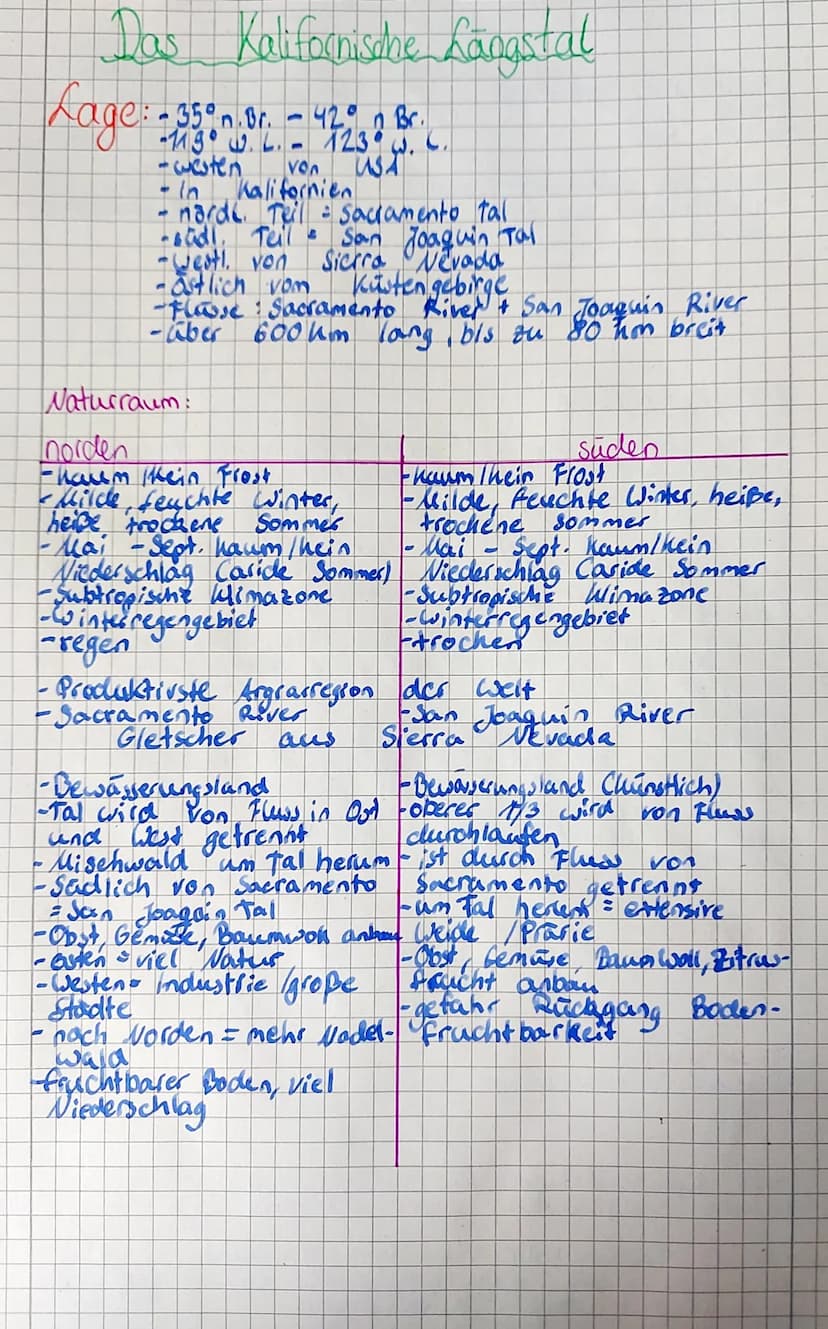 Das Kalifornische Längstal
Lage: - 35° n. Br. - 42° n Br.
- 119° w. L. - 123° w. L.
- westen von USA
- in Kalifornien
- nördl. Teil = Sacramento Tal
- südl. Teil = San Joaquin Tal
- westl. von Sierra Nevada
- östlich vom Küstengebirge
- Flüsse : Sacramento River + San Joaquin River
- über 600 km lang, bis zu 80 km breit
Naturraum:
norden
- kaum /kein Frost
- Milde, feuchte Winter,
heiße trockene Sommer
- Mai - Sept. kaum/kein
Niederschlag (aride Sommer)
- Subtropische Klimazone
- Winterregengebiet
- regen
süden
- kaum/kein Frost
- Milde, feuchte Winter, heiße,
trockene sommer
- Mai - Sept. Kaum/Kein
Niederschlag (aride Sommer
- Subtropische Klimazone
- winterregengebiet
- trocken
- Produktivste Argrarregion der Welt
- Sacramento River - San Joaquin River
Gletscher aus Sierra Nevada
- Bewässerungsland
- Tal wird von Fluss in Ost
und West getrennt
- Mischwald um Tal herum
- Südlich von Sacramento
= San Joaquin Tal
- Obst, Gemüse, Baumwoll anbau
- osten = viel Natur
- westen = Industrie /große
Städte
- nach Norden = mehr Nadel-
wald
- fruchtbarer Boden, viel
Niederschlag
- Bewässerungsland (künstlich)
- oberer 1/3 wird von Fluss
durchlaufen
- ist durch Fluss von
Sacramento getrennt
- um Tal herum = extensive
Weide /Prärie
- Obst, Gemüse, Baumwoll, Zitrus-
frucht anbau
- gefahr Rückgang Boden-
fruchtbarkeit